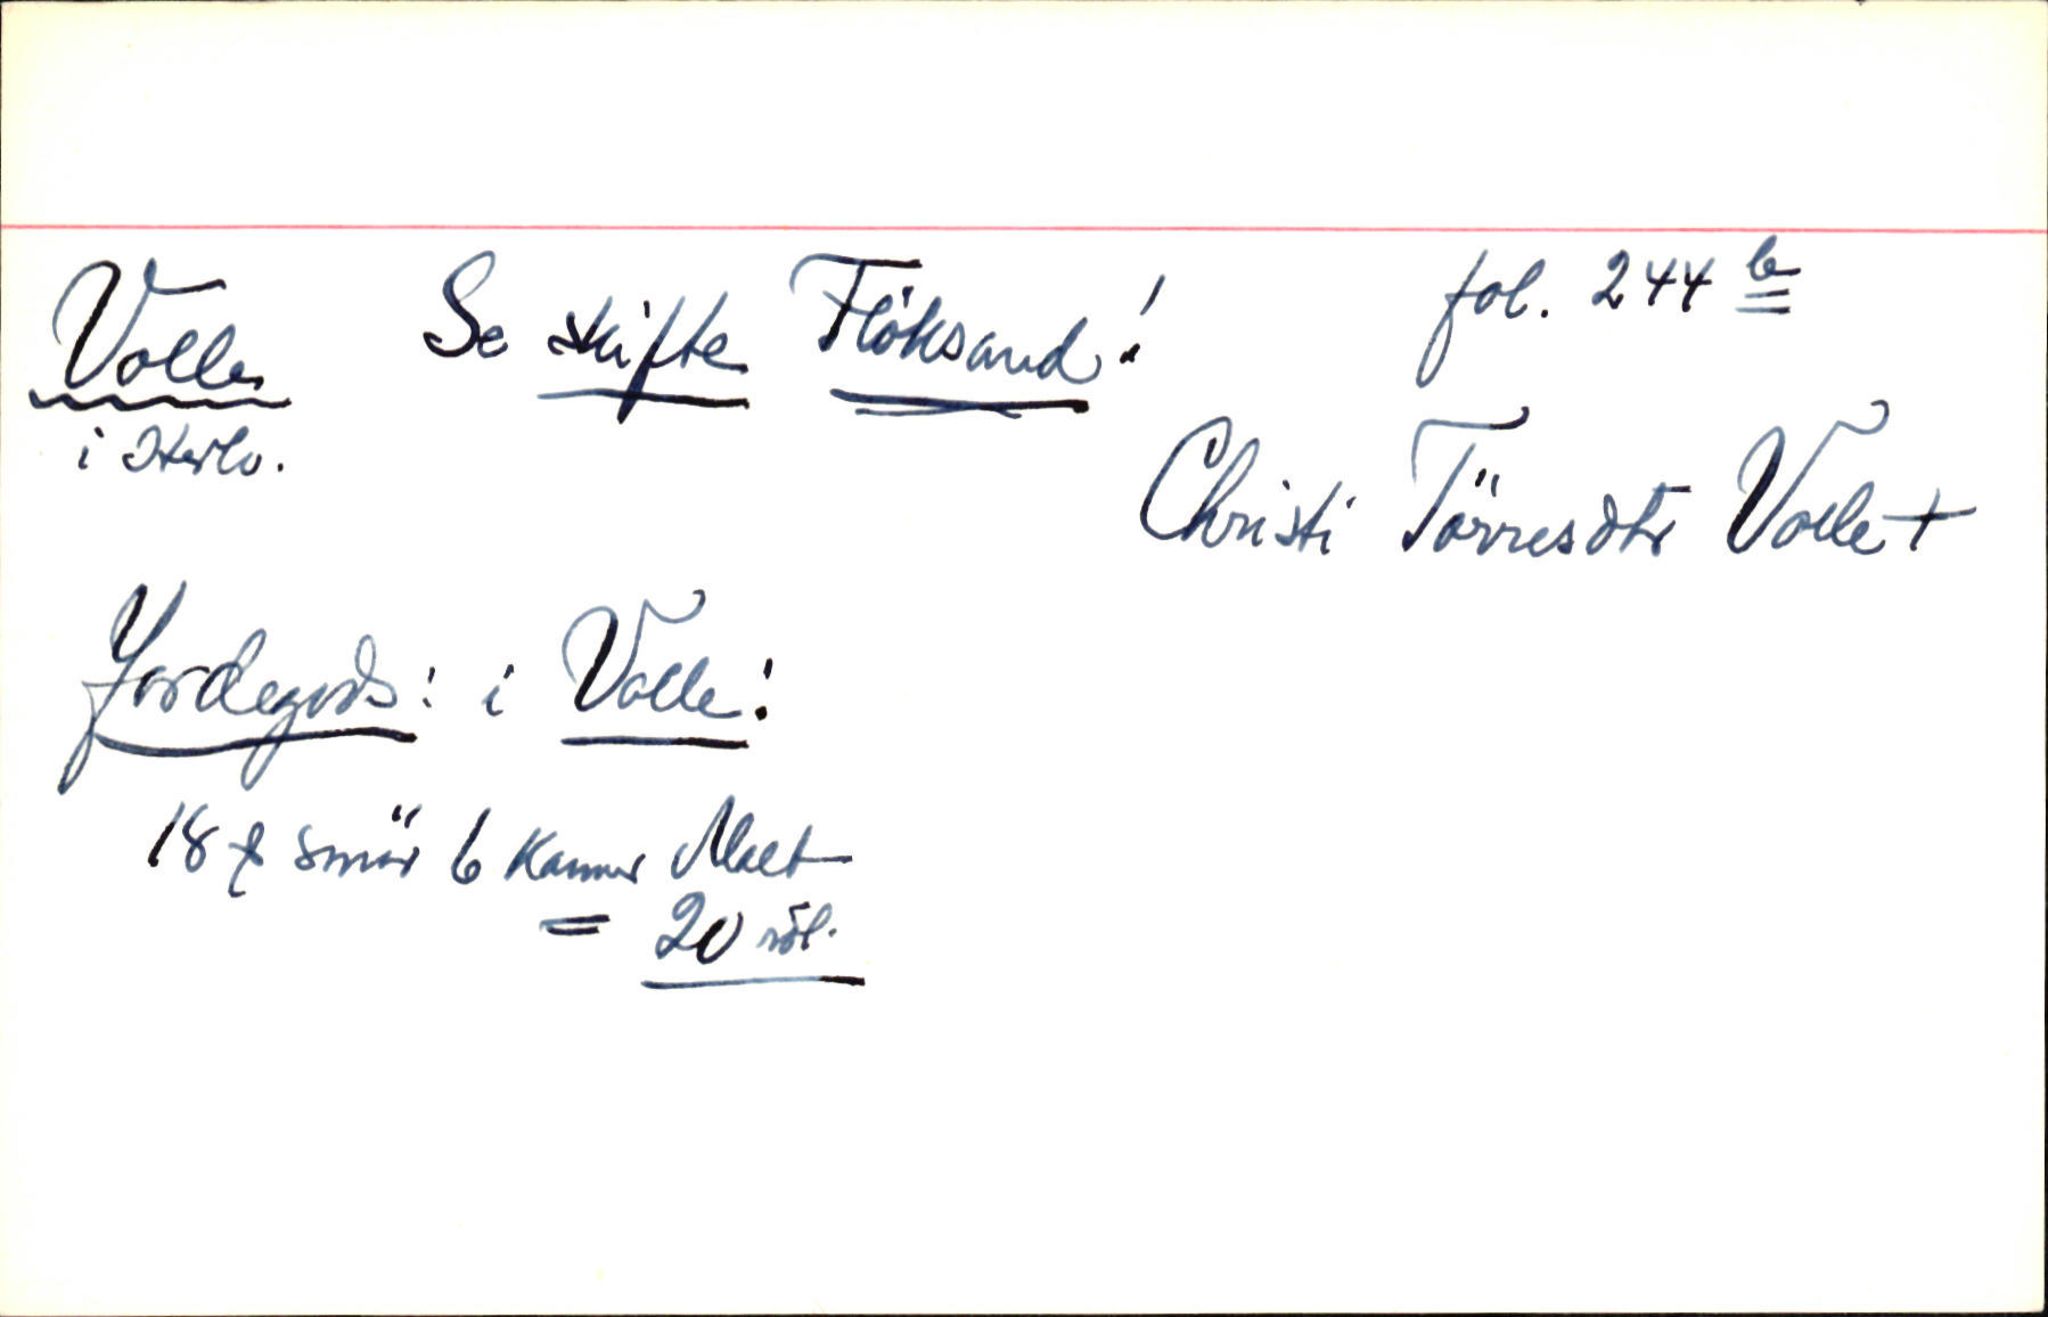 Volle Se skifte Flöksand! fol. 244 b
i Herlø.
Christi Törresdtr Volle +
Jordegods: i Volle:
18 smör 6 Kanner Malt
= 20 rdl.